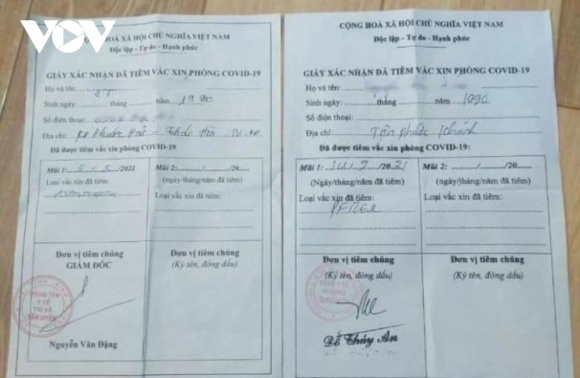 VOV
HOÀ XÃ HỘI CHỦ NGHĨA VIỆT NAM
Độc lập - Tự do - Hạnh phúc
GIẤY XÁC NHẬN ĐÃ TIÊM VẮC XIN PHÒNG COVID-19
Họ và tên:
Sinh ngày: tháng năm 19
Số điện thoại:
Địa chỉ:
Đã được tiêm vắc xin phòng COVID-19:
Mũi 1: /2021
(ngày/tháng/năm đã tiêm)
Loại vắc xin đã tiêm:
Đơn vị tiêm chủng
GIÁM ĐỐC
TRUNG TÂM
Y TẾ
THỊ XÃ
TÂN UYÊN
Nguyễn Văn Dặng
Mũi 2: / /20
(ngày/tháng/năm đã tiêm)
Loại vắc xin đã tiêm:
Đơn vị tiêm chủng
(Ký tên, đóng dấu)
CỘNG HOÀ XÃ HỘI CHỦ NGHĨA VIỆT NAM
Độc lập - Tự do - Hạnh phúc
GIẤY XÁC NHẬN ĐÃ TIÊM VẮC XIN PHÒNG COVID-19
Họ và tên:
Sinh ngày: tháng năm 1990
Số điện thoại:
Địa chỉ: Tân Phước Khánh
Đã được tiêm vắc xin phòng COVID-19:
Mũi 1: 2021
(Ngày/tháng/năm đã tiêm)
Loại vắc xin đã tiêm:
Đơn vị tiêm chủng
(Ký tên, đóng dấu)
Thúy An
Mũi 2: / /20
(ngày/tháng/năm đã tiêm)
Loại vắc xin đã tiêm:
Đơn vị tiêm chủng
(Ký tên, đóng dấu)